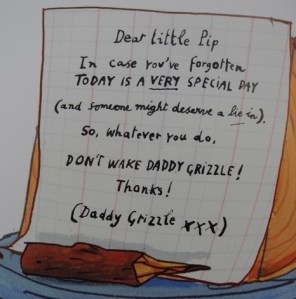 Dear little Pip
In case you've forgotten
TODAY IS A VERY SPECIAL DAY
(and someone might deserve a lie in).
So, whatever you do,
DON'T WAKE DADDY GRIZZLE!
Thanks!
(Daddy Grizzle xxx)